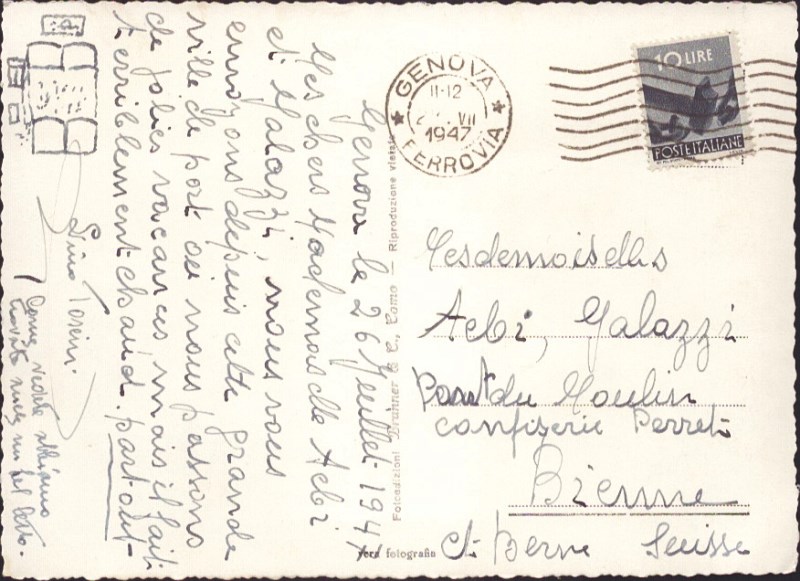 Genova le 26 Juillet 1947
Mes chers Mademoiselle Aebi
et Galazzi, nous vous
envoyons depuis cette grande
ville de port où nous passons
de jolies vacances mais il fait
terriblement chaud. partout.
Dino
Come vedete abbiamo
GENOVA
11-12
VII
1947
FERROVIA
10 LIRE
POSTE ITALIANE
Mesdemoiselles
Aebi, Galazzi
Pont du Moulin
confiserie Perret
Bienne
Ct. Berne Suisse
Fotoedizioni Brunner & C., Como — Riproduzione vietata
vera fotografia